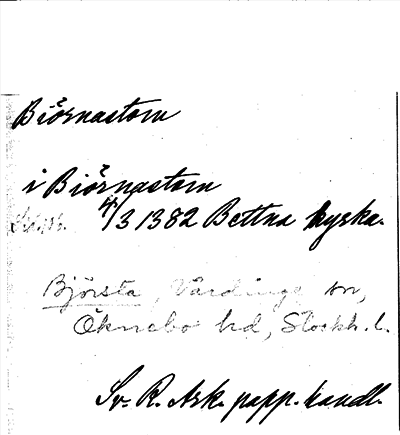 Biörnastom
i Biörnastom
4/3 1382 Bettna kyrka.
Björsta, Vårdinge sn,
Öknebo hd, Stockh. l.
Sv. R. Ark. papp. handl.